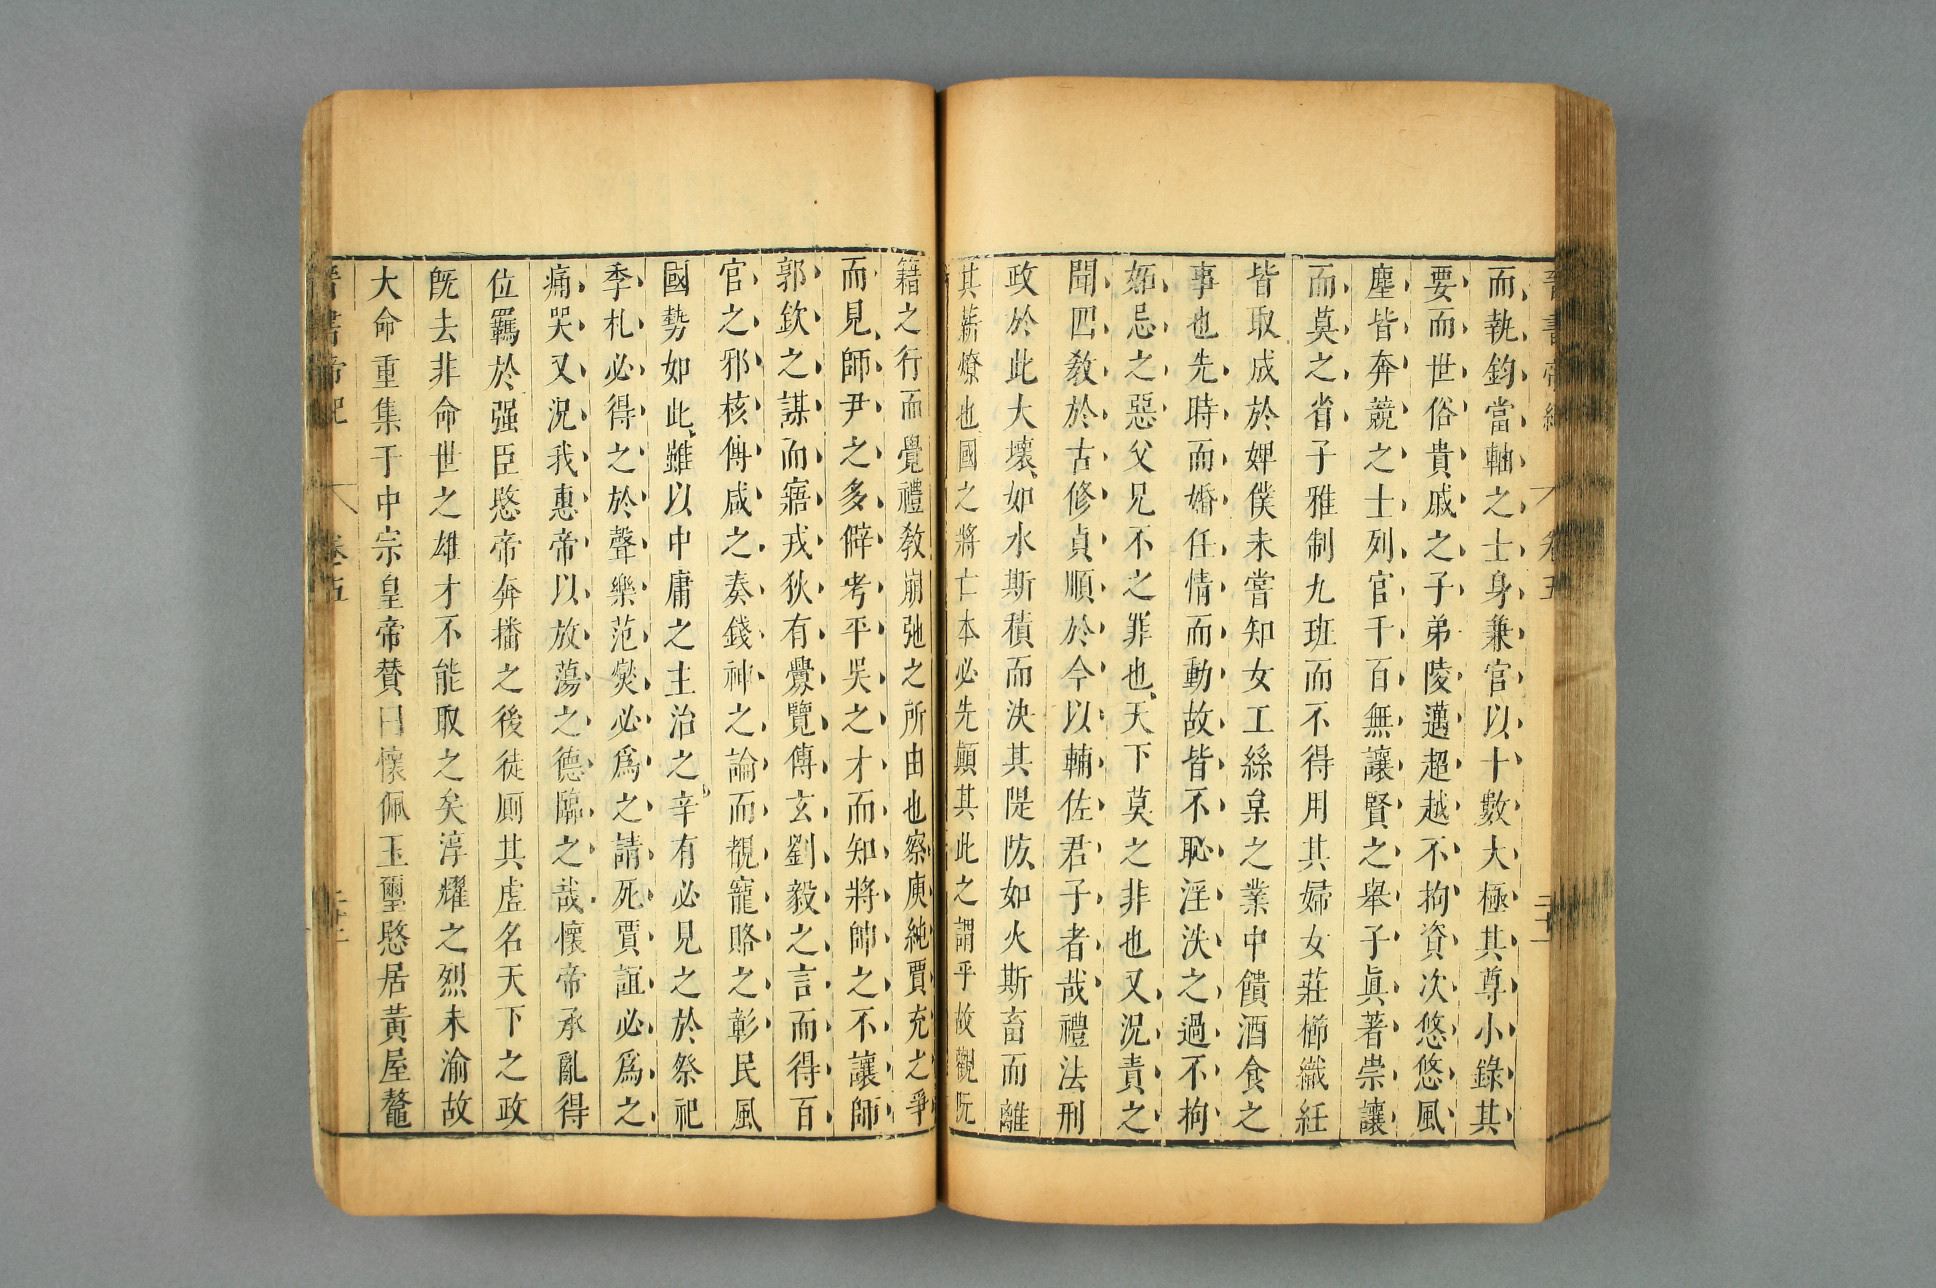 晉書帝紀 卷五 二十一
而執鈞當軸之士身兼官以十數大極其尊小錄其
要而世俗貴戚之子弟陵邁超越不拘資次悠悠風
塵皆奔競之士列官千百無讓賢之舉子眞著崇讓
而莫之省子雅制九班而不得用其婦女莊櫛織紝
皆取成於婢僕未嘗知女工絲枲之業中饋酒食之
事也先時而婚任情而動故皆不恥淫泆之過不拘
妬忌之惡父兄不之罪也天下莫之非也又況責之
聞四敎於古修貞順於今以輔佐君子者哉禮法刑
政於此大壞如水斯積而決其隄防如火斯畜而離
其薪燎也國之將亡本必先顚其此之謂乎故觀阮
籍之行而覺禮敎崩弛之所由也察庾純賈充之爭
而見師尹之多僻考平吳之才而知將帥之不讓師
郭欽之謀而寤戎狄有釁覽傅玄劉毅之言而得百
官之邪核傅咸之奏錢神之論而覩寵賂之彰民風
國勢如此雖以中庸之主治之辛有必見之於祭祀
季札必得之於聲樂范燮必爲之請死賈誼必爲之
痛哭又況我惠帝以放蕩之德臨之哉懷帝承亂得
位羈於强臣愍帝奔播之後徒厠其虛名天下之政
旣去非命世之雄才不能取之矣淳耀之烈未渝故
大命重集于中宗皇帝賛曰懷佩玉璽愍居黃屋鼇
晉書帝紀 卷五 二十二